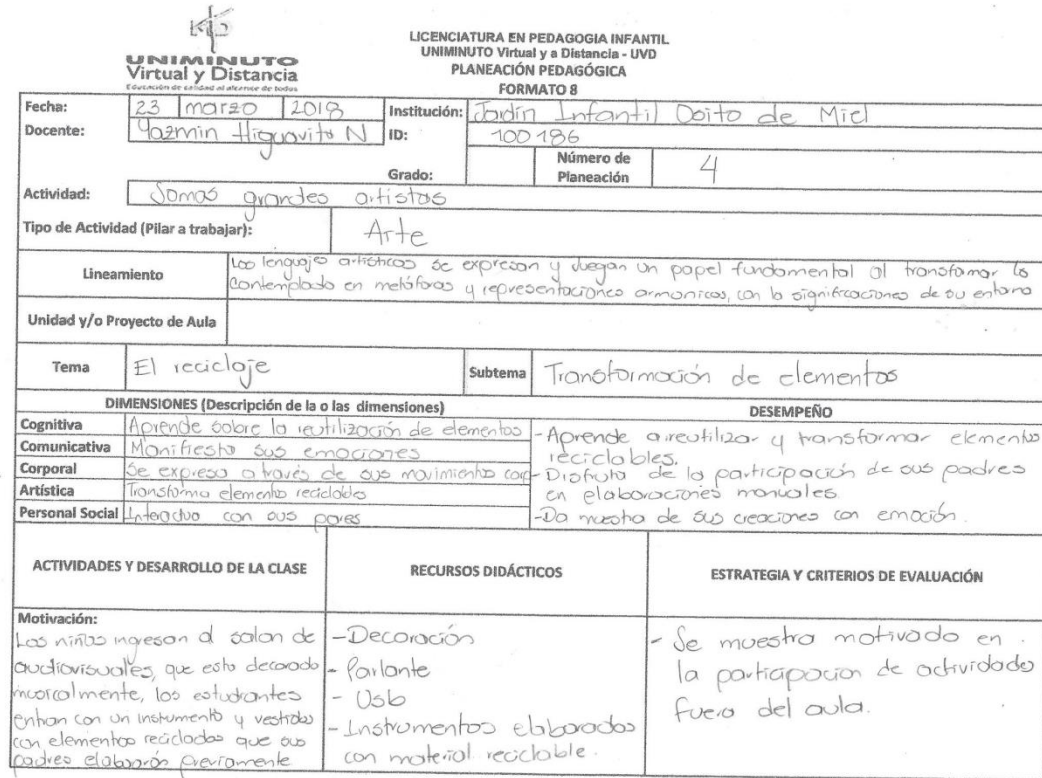 UNIMINUTO
Virtual y Distancia
Educación de calidad al alcance de todos
LICENCIATURA EN PEDAGOGIA INFANTIL
UNIMINUTO Virtual y a Distancia - UVD
PLANEACIÓN PEDAGÓGICA
FORMATO 8
Fecha: 23 marzo 2018 Institución: Jardín Infantil Osito de Miel
Docente: Yazmin Higuavita N ID: 100186
Grado: Número de Planeación 4
Actividad: Somos grandes artistas
Tipo de Actividad (Pilar a trabajar): Arte
Lineamiento Los lenguajes artísticos se expresan y juegan un papel fundamental al transformar lo
contemplado en metáforas y representaciones armonicas, con la significaciones de su entorno
Unidad y/o Proyecto de Aula
Tema El reciclaje Subtema Transformación de elementos
DIMENSIONES (Descripción de la o las dimensiones) DESEMPEÑO
Cognitiva Aprende sobre la reutilización de elementos
Comunicativa Manifiesta sus emociones
Corporal Se expresa a través de sus movimiento corp
Artística Transforma elemento reciclados
Personal Social Interactua con sus pares
- Aprende a reutilizar y transformar elementos
reciclables.
- Disfruta de la participación de sus padres
en elaboraciones manuales.
- Da muestra de sus creaciones con emoción.
ACTIVIDADES Y DESARROLLO DE LA CLASE RECURSOS DIDÁCTICOS ESTRATEGIA Y CRITERIOS DE EVALUACIÓN
Motivación:
Los niños ingresan al salon de
audiovisuales, que esta decorado
musicalmente, los estudiantes
entran con un instumento y vestidos
con elementos reciclados que sus
padres elaborarón previamente
- Decoración
- Parlante
- Usb
- Instrumentos elaborados
con material reciclable.
- Se muestra motivado en
la participacion de actividades
fuera del aula.